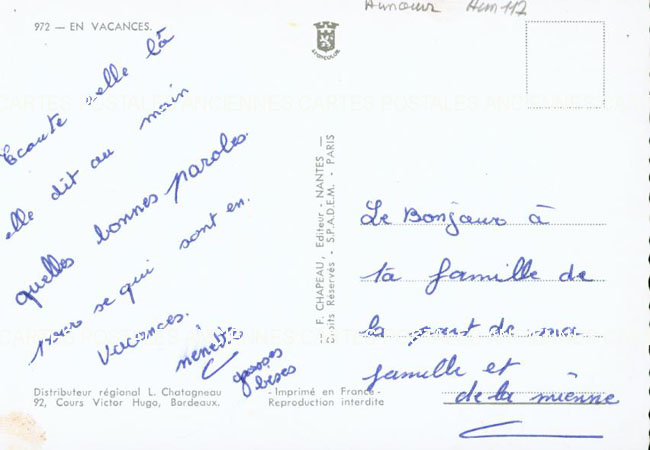 Humour Hum 117
972 — EN VACANCES.
APOPCOLOR
CARTES POSTALES ANCIENNES CARTES POSTALES ANCIENNES CARTES
Ecoute celle là
elle dit au main
quelles bonnes paroles.
pour se qui sont en.
vacances.
nenette
grosses
bises
F. CHAPEAU, Editeur - NANTES —
Droits Réservés - S.P.A.D.E.M. - PARIS
Le Bonjour à
ta famille de
la part de ma
famille et
de la mienne
Distributeur régional L. Chatagneau
92, Cours Victor Hugo, Bordeaux.
- Imprimé en France -
Reproduction interdite